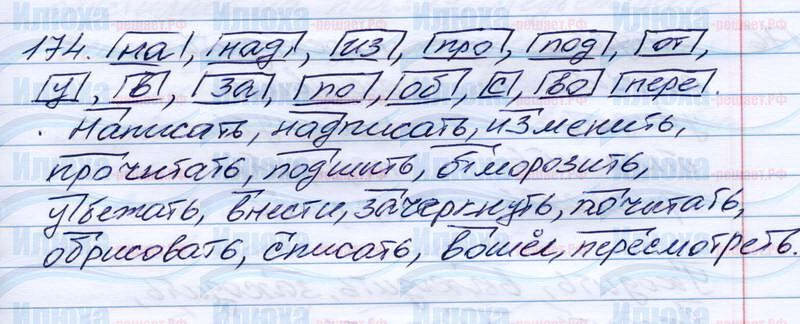 174. на, над, из, про, под, от,
у, в, за, по, об, с, во пере.
Написать, надписать, изменить,
прочитать, подшить, отморозить,
убежать, внести, зачеркнуть, почитать,
обрисовать, списать, вошёл, пересмотреть.